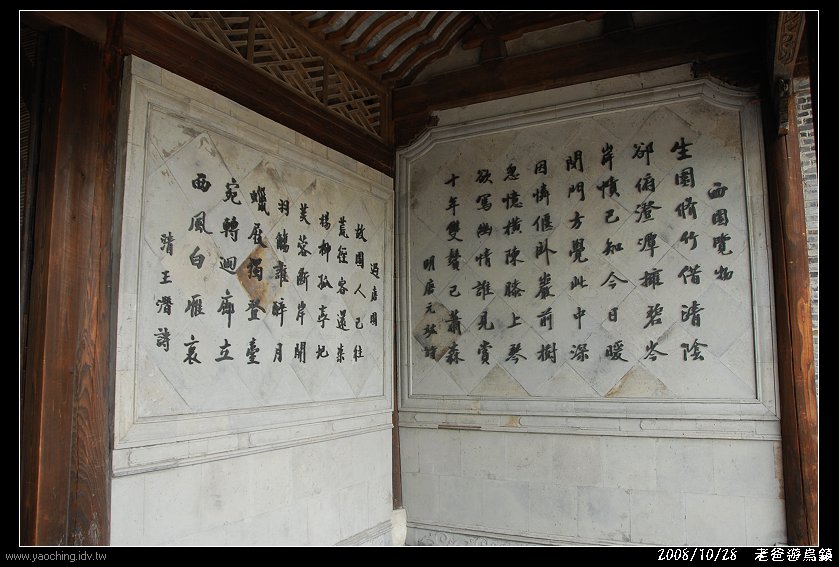 西園覽物
生園脩竹借清陰
郤俯澄潭擁碧岑
岸幘已知今日暖
閉門方覺此中深
因憐偃卧巖前樹
忽憶橫陳膝上琴
欲寫幽情誰見賞
十年雙鬢已蕭森
明唐元竑詩
過唐園
故園人已往
荒徑客還來
楊柳孤亭圮
芙蓉斷岸開
羽觴誰醉月
蠟屐獨登臺
宛轉迴廊立
西風白雁哀
清王潛詩
www.yaoching.idv.tw
2008/10/28 老爸遊烏鎮